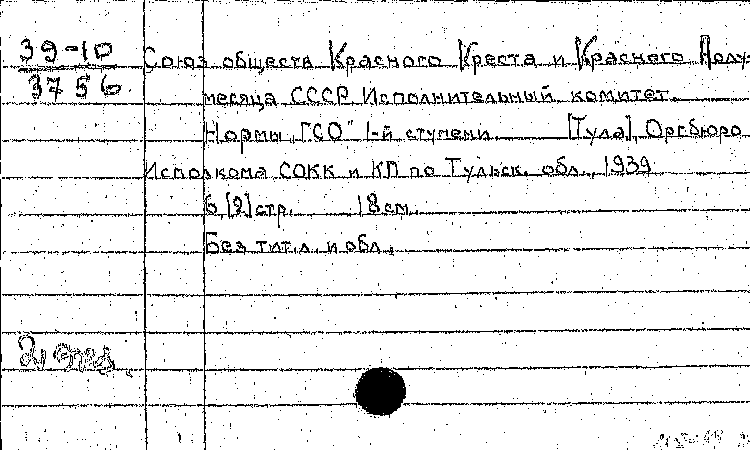 39-10 Союз обществ Красного Креста и Красного Полу-
3756 месяца СССР. Исполнительный комитет.
Нормы "ГСО" 1-й ступени. [Тула], Оргбюро
Исполкома СОКК и КП по Тульск. обл., 1939
6, [2] стр. 18 см.
Без тит. л. и обл.
2 экз.